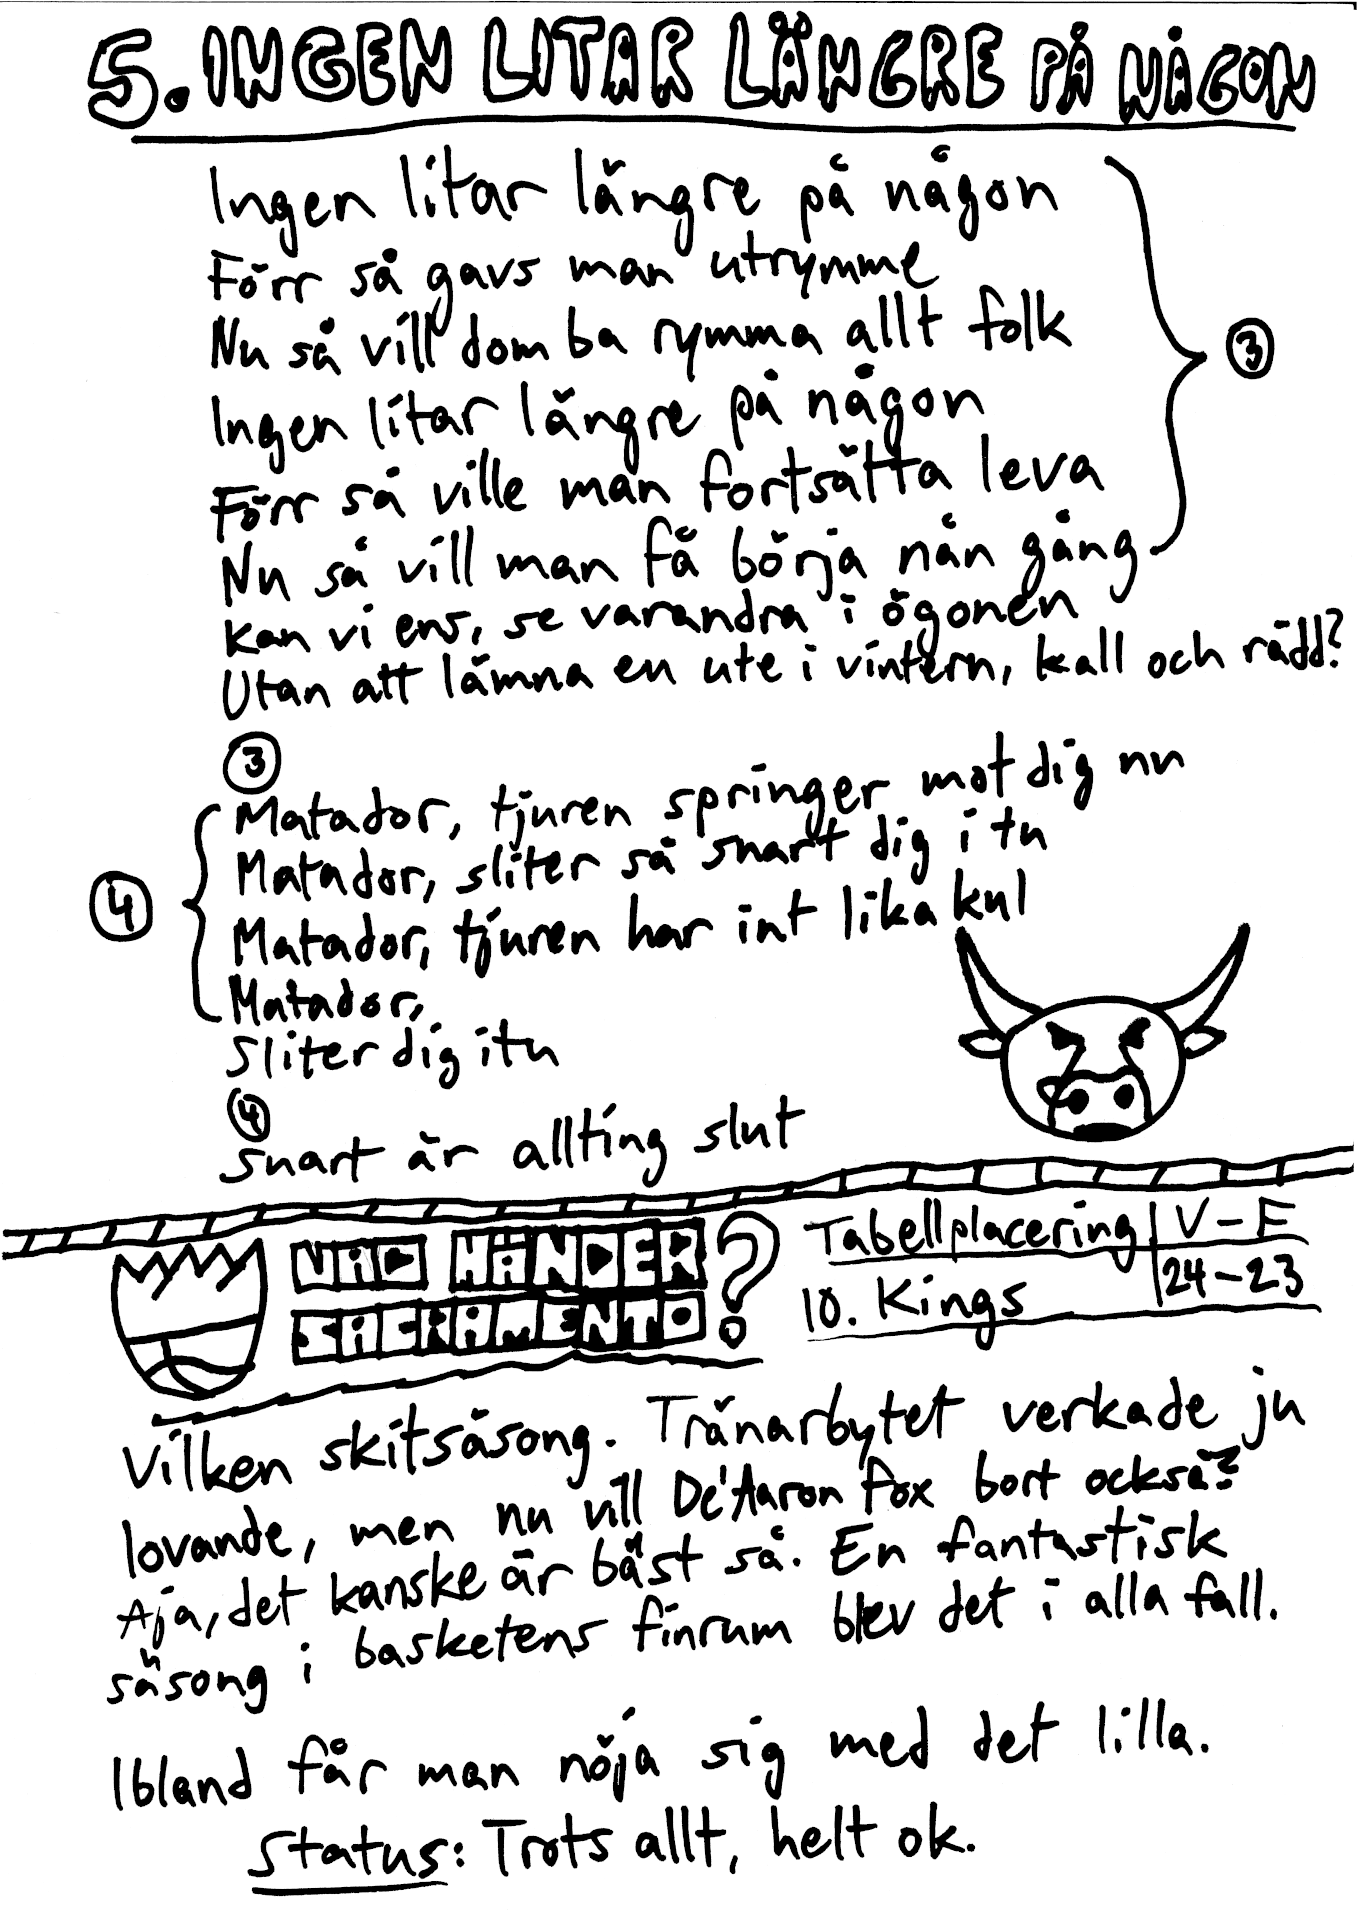 5. INGEN LITAR LÄNGRE PÅ NÅGON
Ingen litar längre på någon
Förr så gavs man utrymme
Nu så vill dom ba rymma allt folk
Ingen litar längre på någon
Förr så ville man fortsätta leva
Nu så vill man få börja nån gång
③
Kan vi ens, se varandra i ögonen
Utan att lämna en ute i vintern, kall och rädd?
③
Matador, tjuren springer mot dig nu
Matador, sliter så snart dig i tu
④
Matador, tjuren har int lika kul
Matador,
Sliter dig itu
④
Snart är allting slut
VAD HÄNDER
SACRAMENTO?
Tabellplacering V-F
10. Kings 24-23
Vilken skitsäsong. Tränarbytet verkade ju
lovande, men nu vill De'Aaron Fox bort också?
Aja, det kanske är bäst så. En fantastisk
säsong i basketens finrum blev det i alla fall.
Ibland får man nöja sig med det lilla.
Status: Trots allt, helt ok.